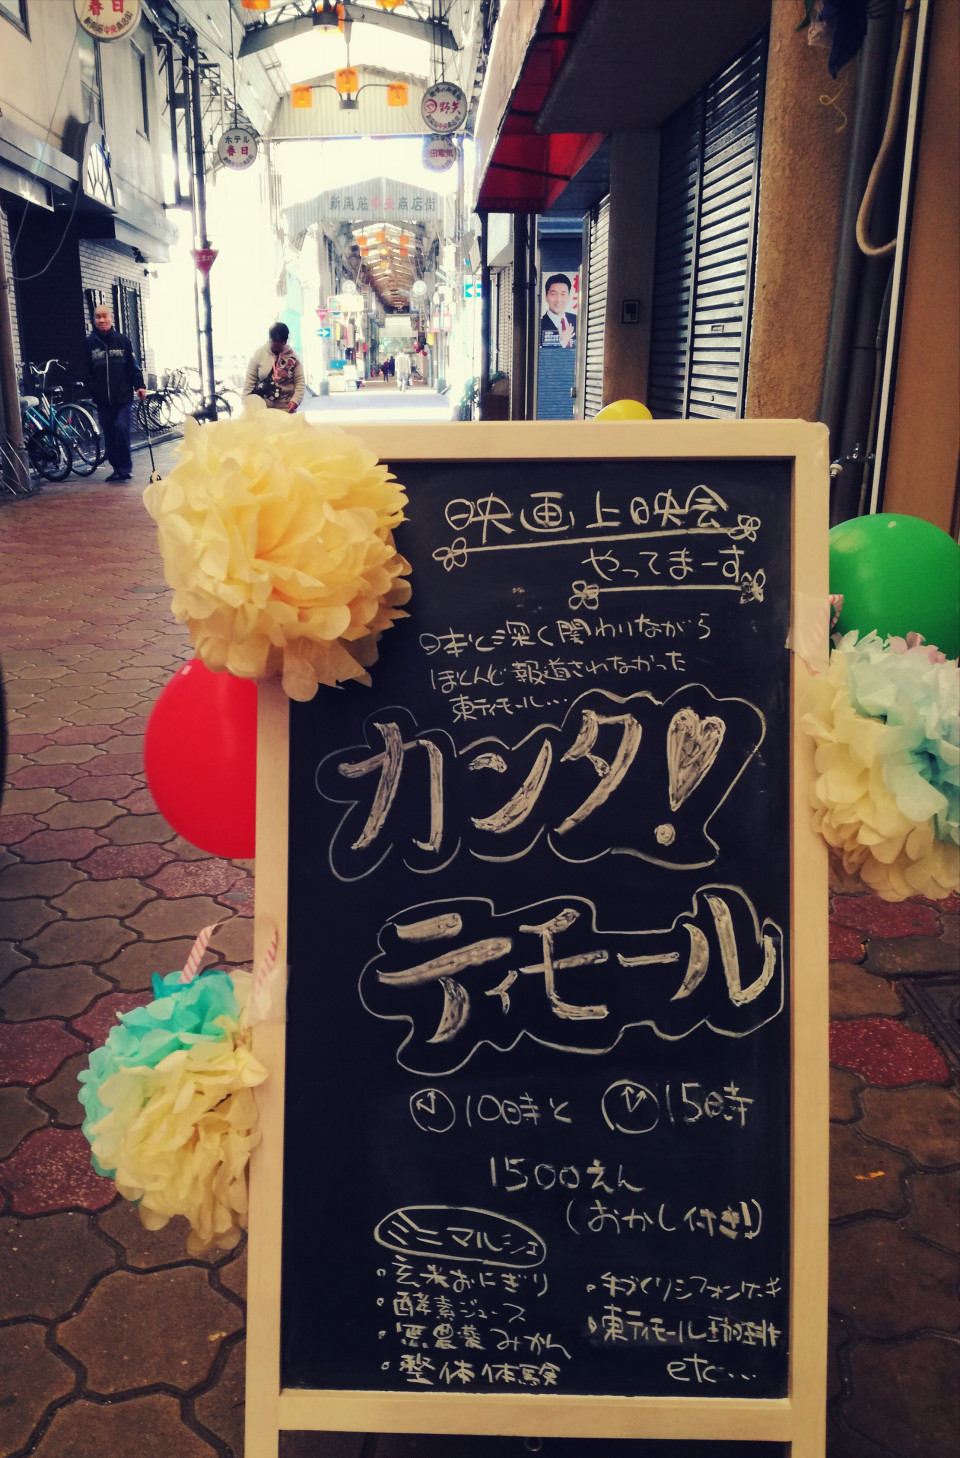 春日
ホテル
春日
野矢
新風筋中央商店街
止まれ
映画上映会
やってまーす
日本と深く関わりながら
ほとんど報道されなかった
東ティモール…
カンタ!
ティモール
10時と 15時
1500えん
(おかし付き!)
ミニマルシェ
・玄米おにぎり
・酵素ジュース
・無農薬みかん
・整体体験
・手づくりシフォンケーキ
・東ティモール珈琲
etc…